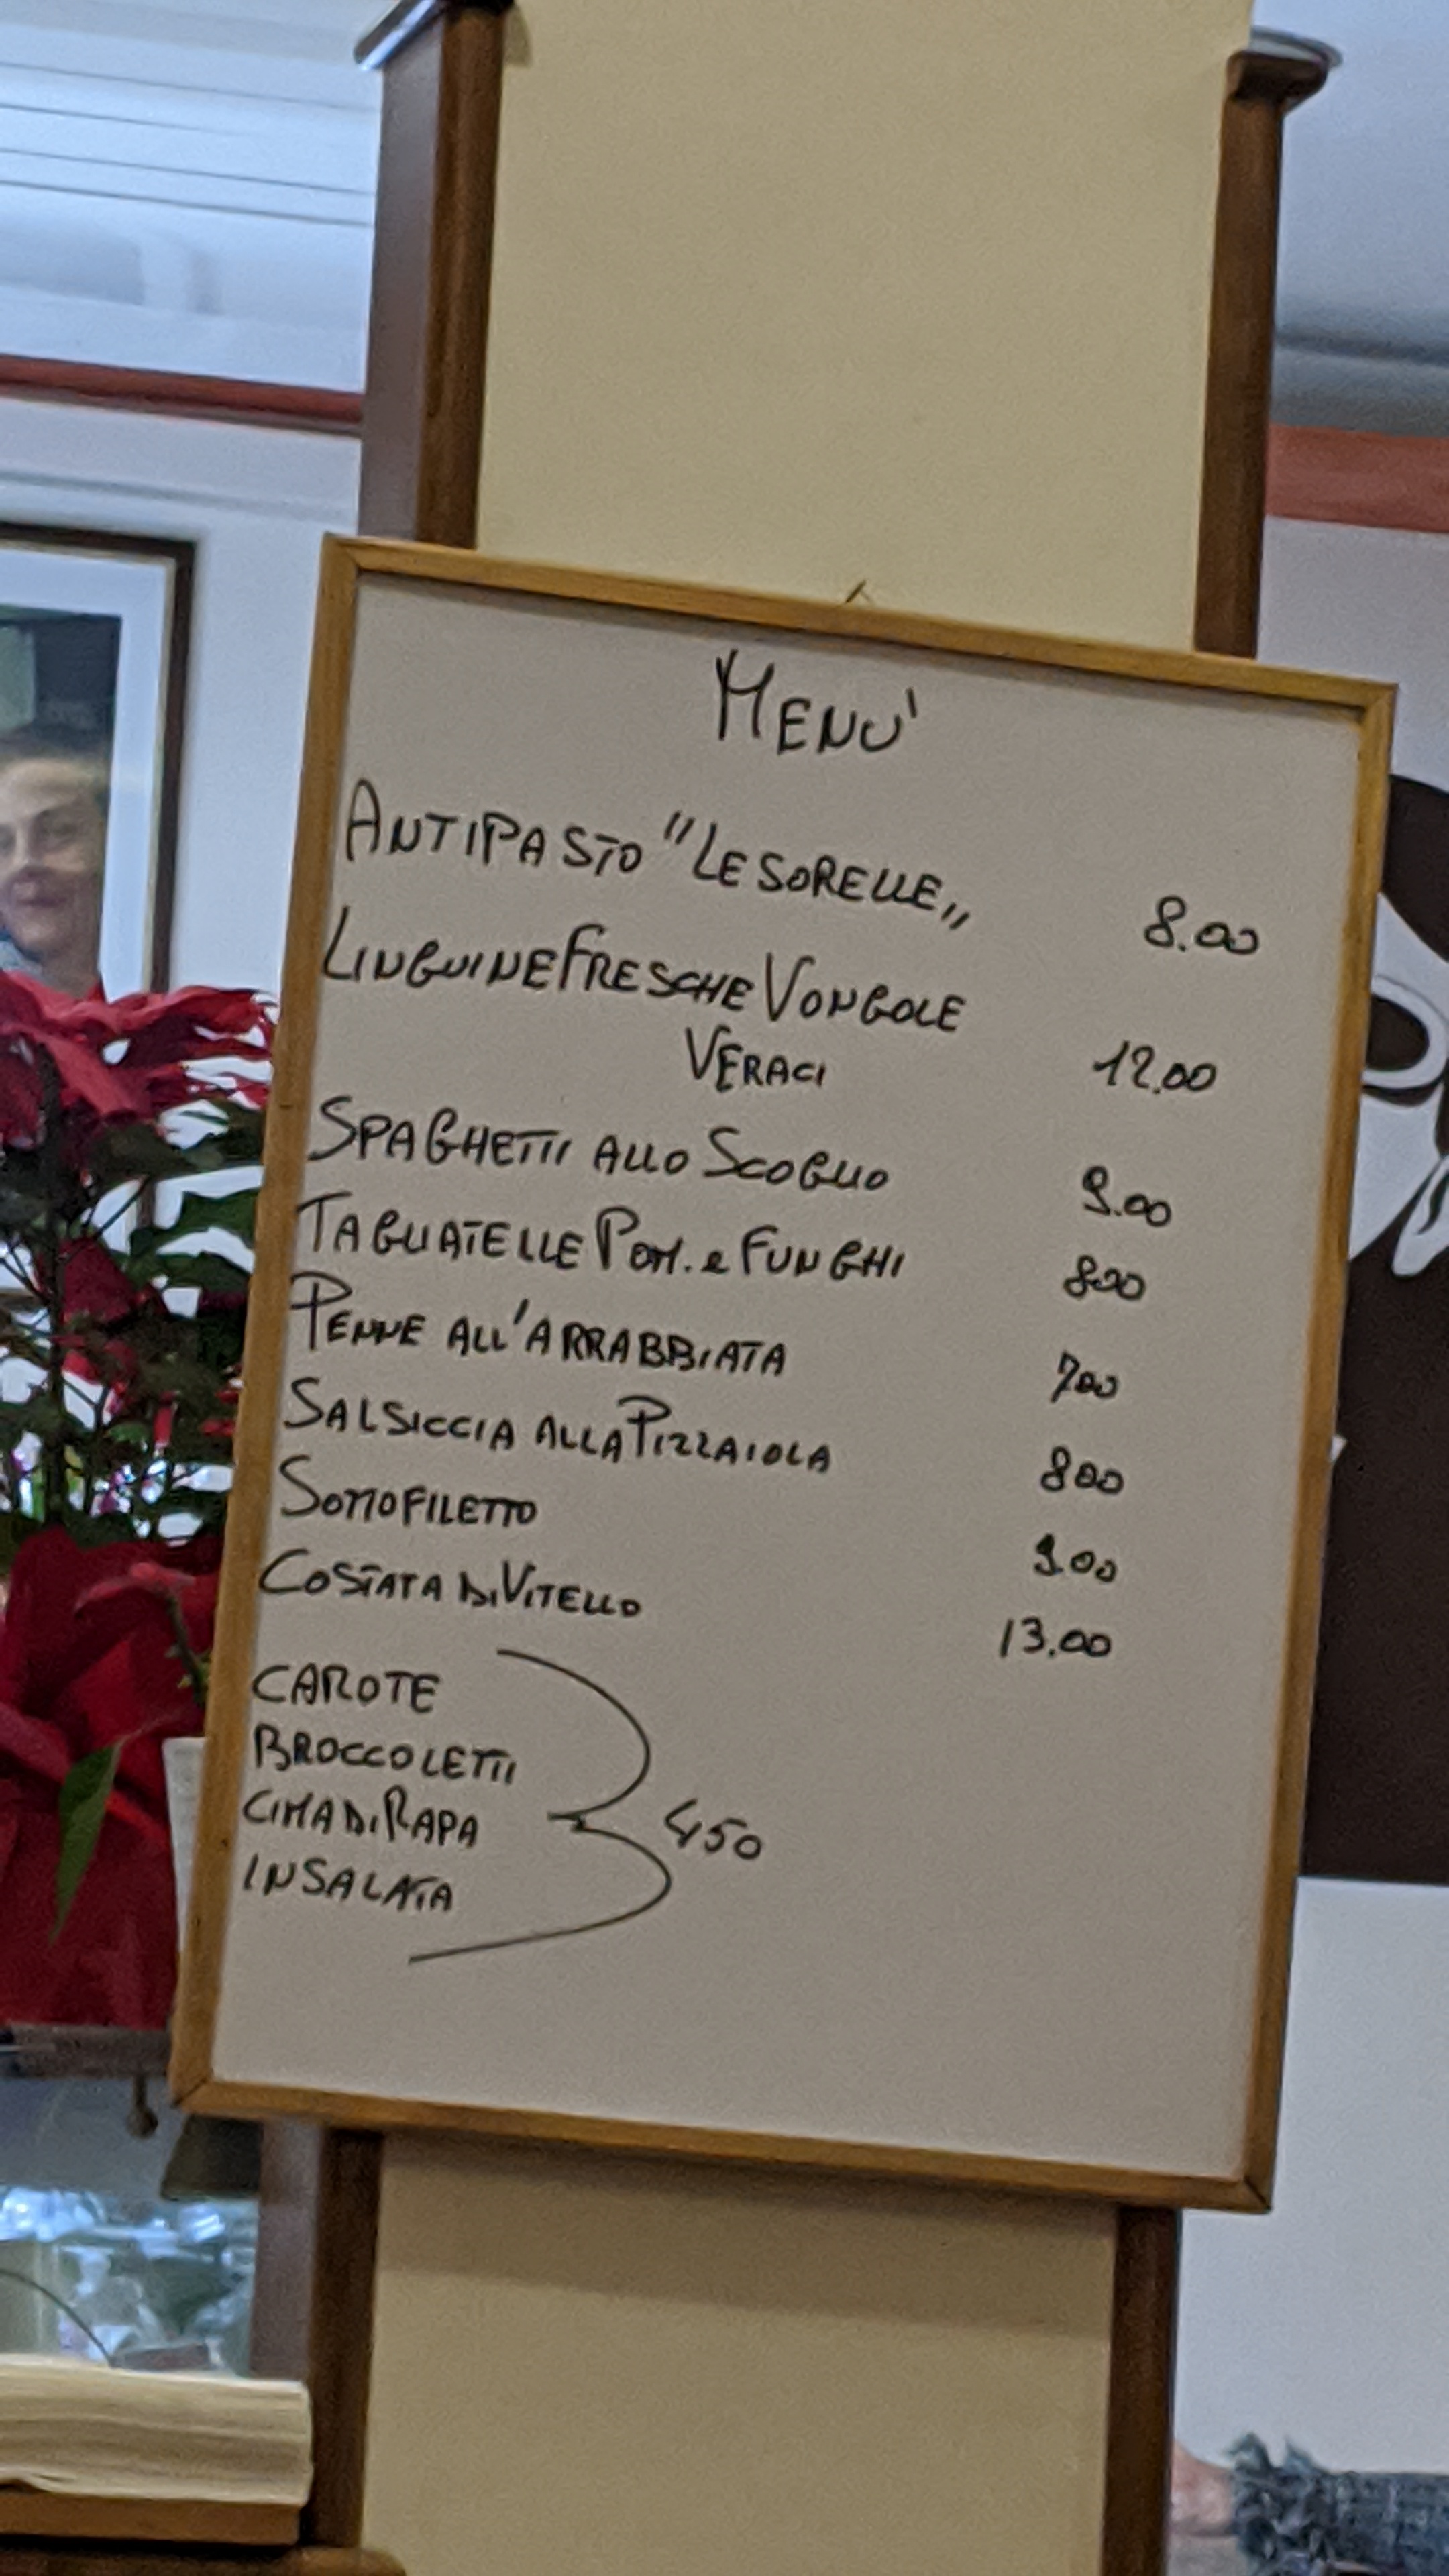 MENU'
ANTIPASTO "LE SORELLE„ 8.00
LINGUINE FRESCHE VONGOLE
VERACI 12.00
SPAGHETTI ALLO SCOGLIO 9.00
TAGLIATELLE POM. e FUNGHI 800
PENNE ALL'ARRABBIATA 700
SALSICCIA ALLA PIZZAIOLA 800
SOTTOFILETTO 9.00
COSTATA DI VITELLO 13.00
CAROTE
BROCCOLETTI
CIMA DI RAPA 450
INSALATA